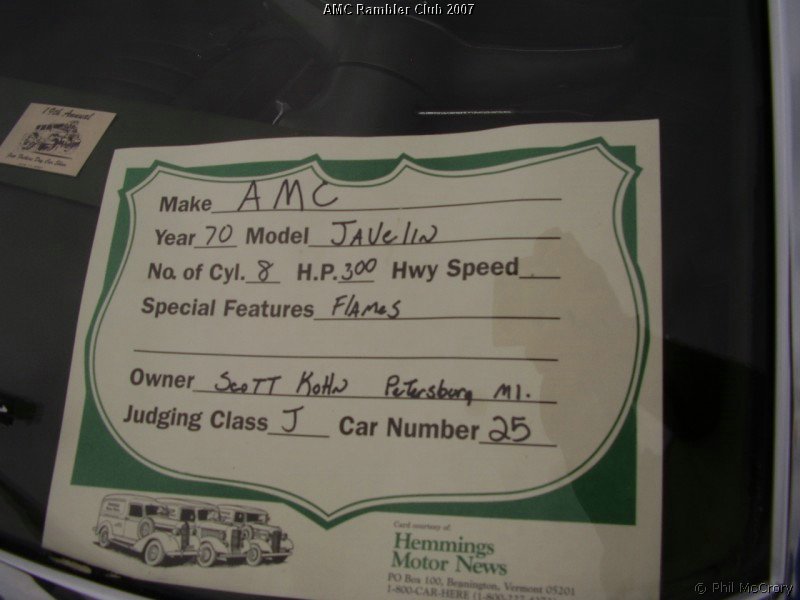 AMC Rambler Club 2007
19th Annual
Make AMC
Year 70 Model JAVelIN
No. of Cyl. 8 H.P. 300 Hwy Speed
Special Features FlAMeS
Owner ScoTT KoHN Petersburg MI.
Judging Class J Car Number 25
Card courtesy of:
Hemmings
Motor News
PO Box 100, Bennington, Vermont 05201
1-800-CAR-HERE
© Phil McCrory